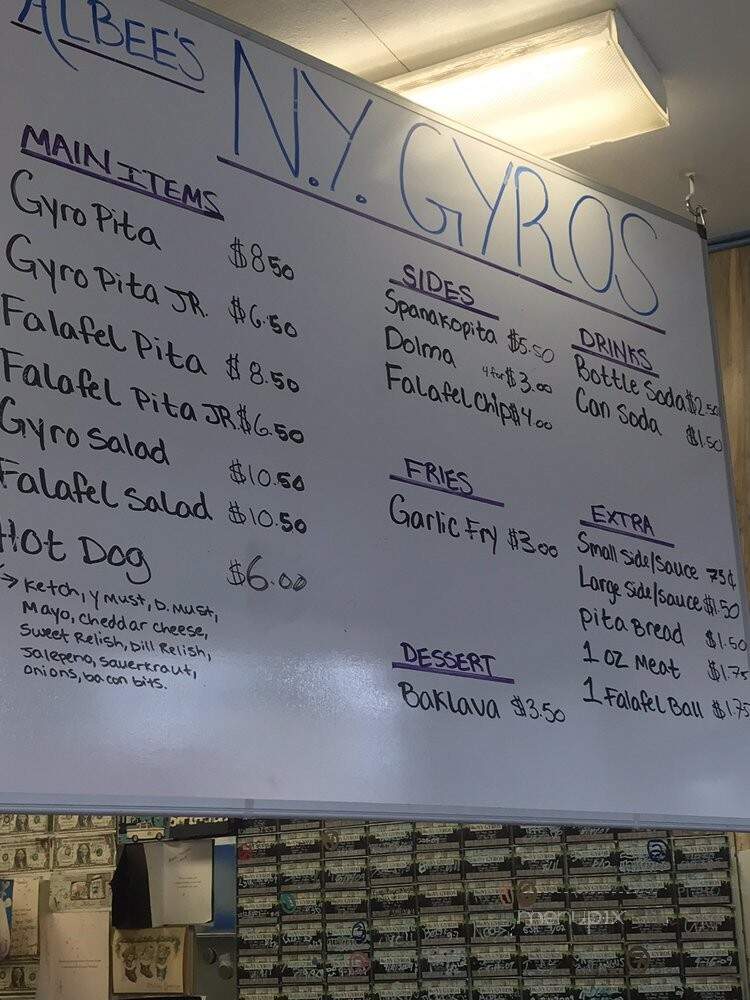 ALBEE'S
N.Y. GYROS
MAIN ITEMS
Gyro Pita $8.50
Gyro Pita JR. $6.50
Falafel Pita $8.50
Falafel Pita JR $6.50
Gyro Salad $10.50
Falafel Salad $10.50
Hot Dog $6.00
→ Ketch, Y Must, D. Must,
Mayo, Cheddar Cheese,
Sweet Relish, Dill Relish,
Jalepeno, Sauerkraut,
Onions, bacon bits.
SIDES
Spanakopita $5.50
Dolma 4 for $3.00
Falafel Chip $4.00
FRIES
Garlic Fry $3.00
DESSERT
Baklava $3.50
DRINKS
Bottle Soda $2.50
Can Soda $1.50
EXTRA
Small Side/Sauce 75¢
Large Side/Sauce $1.50
Pita Bread $1.50
1 oz Meat $1.75
1 Falafel Ball $1.75
menupix